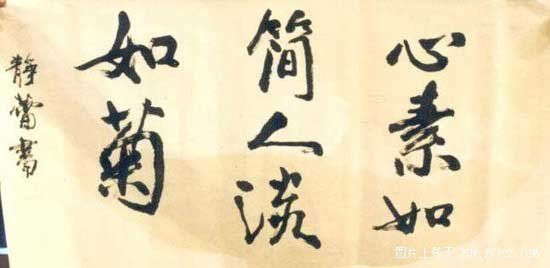 心素如
简人淡
如菊
静蕾书
图片上传于 POP.PCPOP.COM